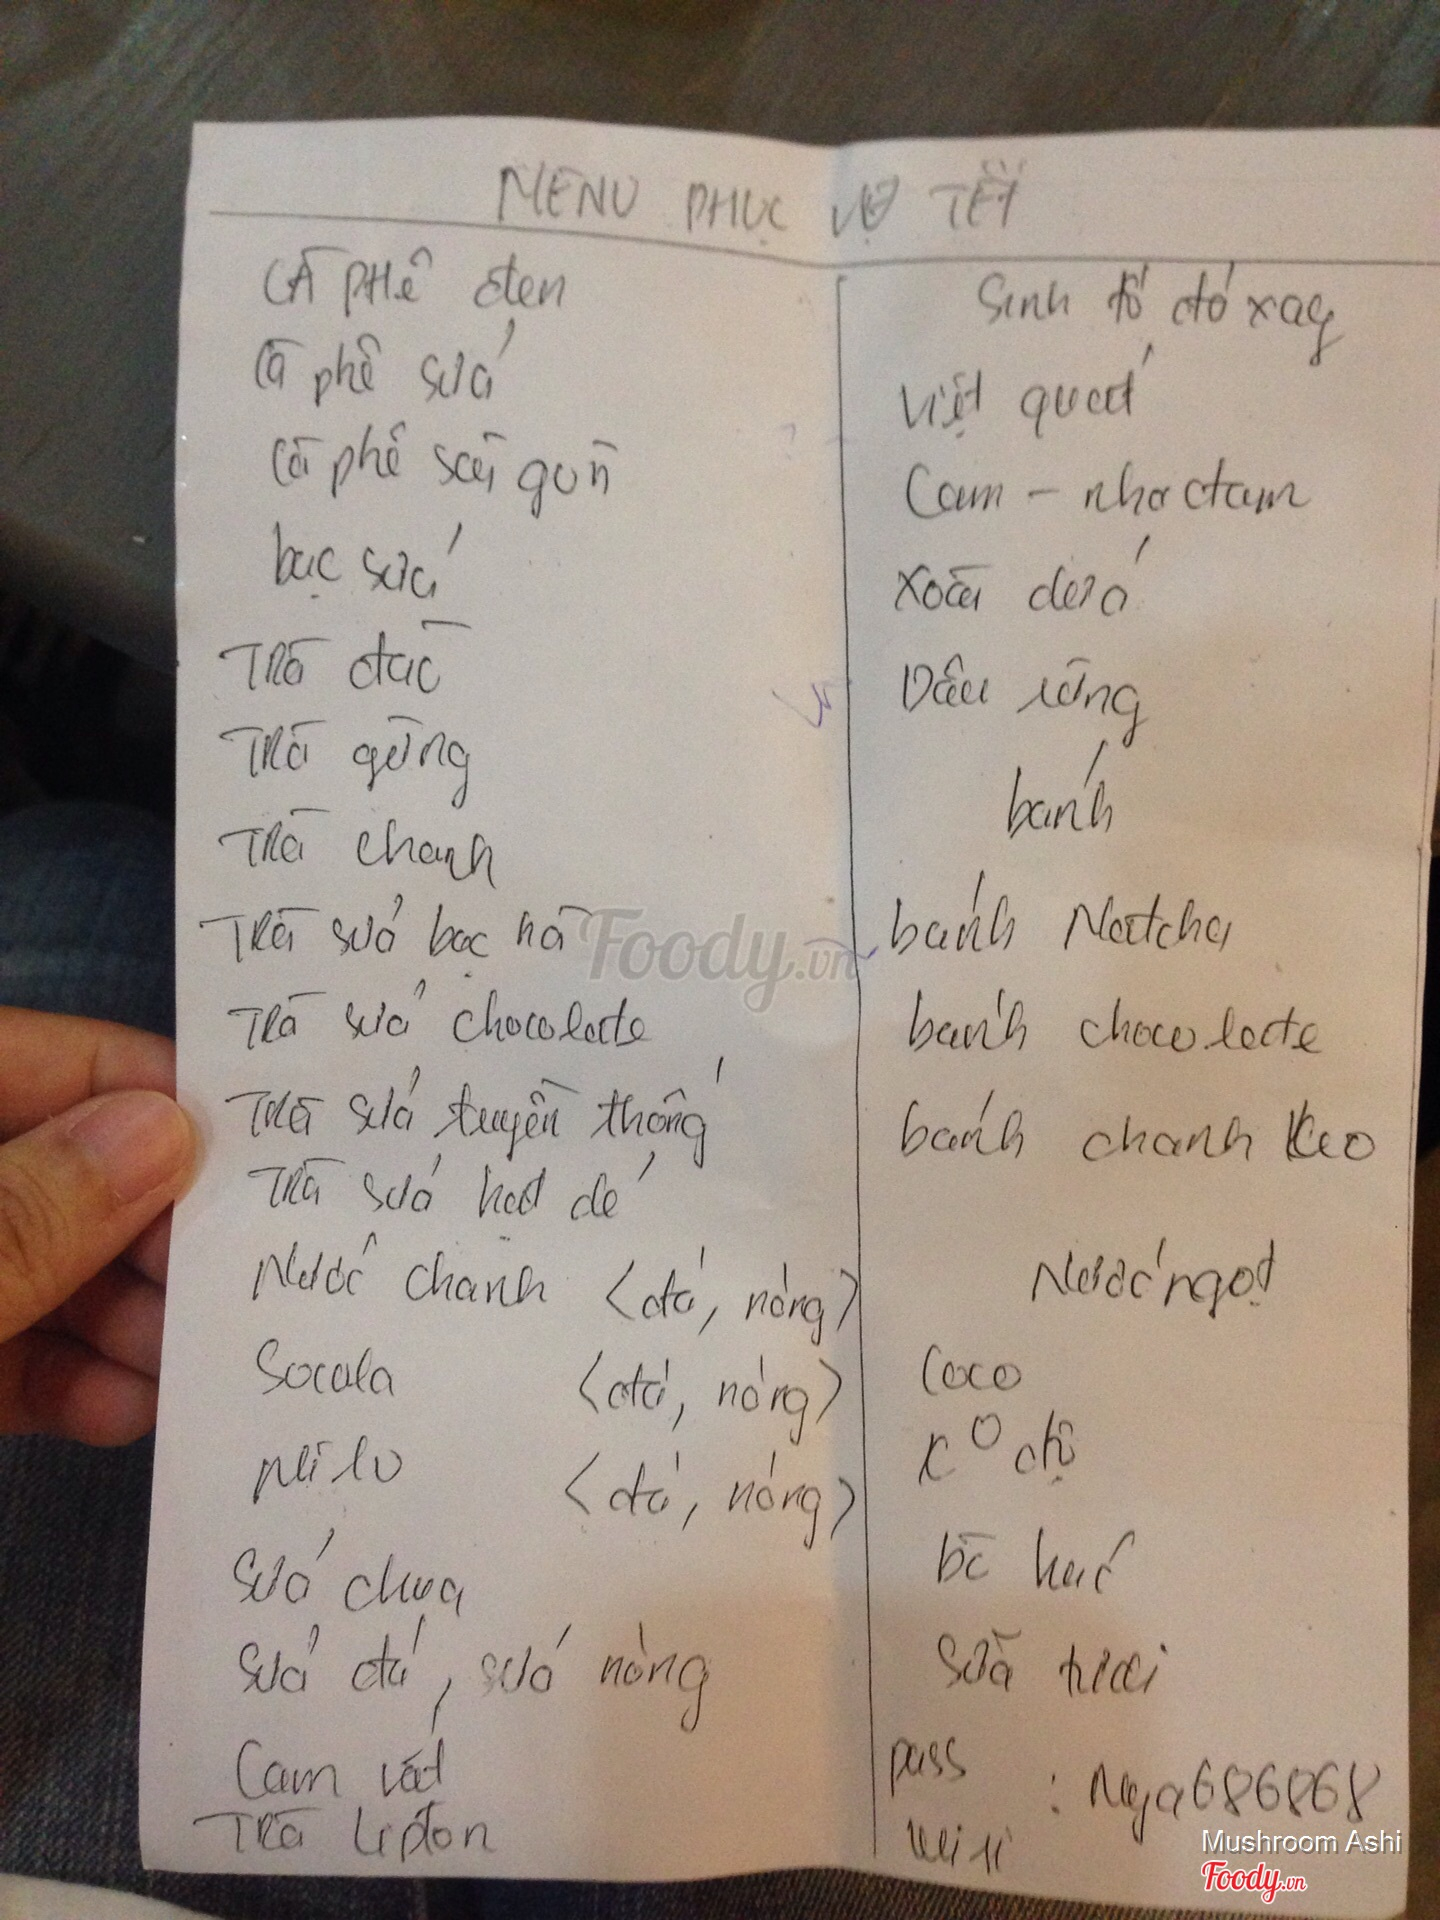 MENU PHỤC VỤ TẾT
CÀ PHÊ đen
Cà phê sữa
Cà phê sài gòn
bạc sửu
Trà đào
Trà gừng
Trà chanh
Trà sữa bạc hà
Trà sữa chocolate
Trà sữa truyền thống
Trà sữa hạt dẻ
Nước chanh (đá, nóng)
Socola (đá, nóng)
Milo (đá, nóng)
Sữa chua
Sữa đá, sữa nóng
Cam vắt
Trà Lipton
Sinh tố đá xay
Việt quất
Cam - nha đam
Xoài dứa
Dâu rừng
bánh
bánh Matcha
bánh chocolate
bánh chanh leo
Nước ngọt
Coco
bò húc
Sữa tươi
pass
wifi
: Nga686868
Foody.vn
Mushroom Ashi
Foody.vn